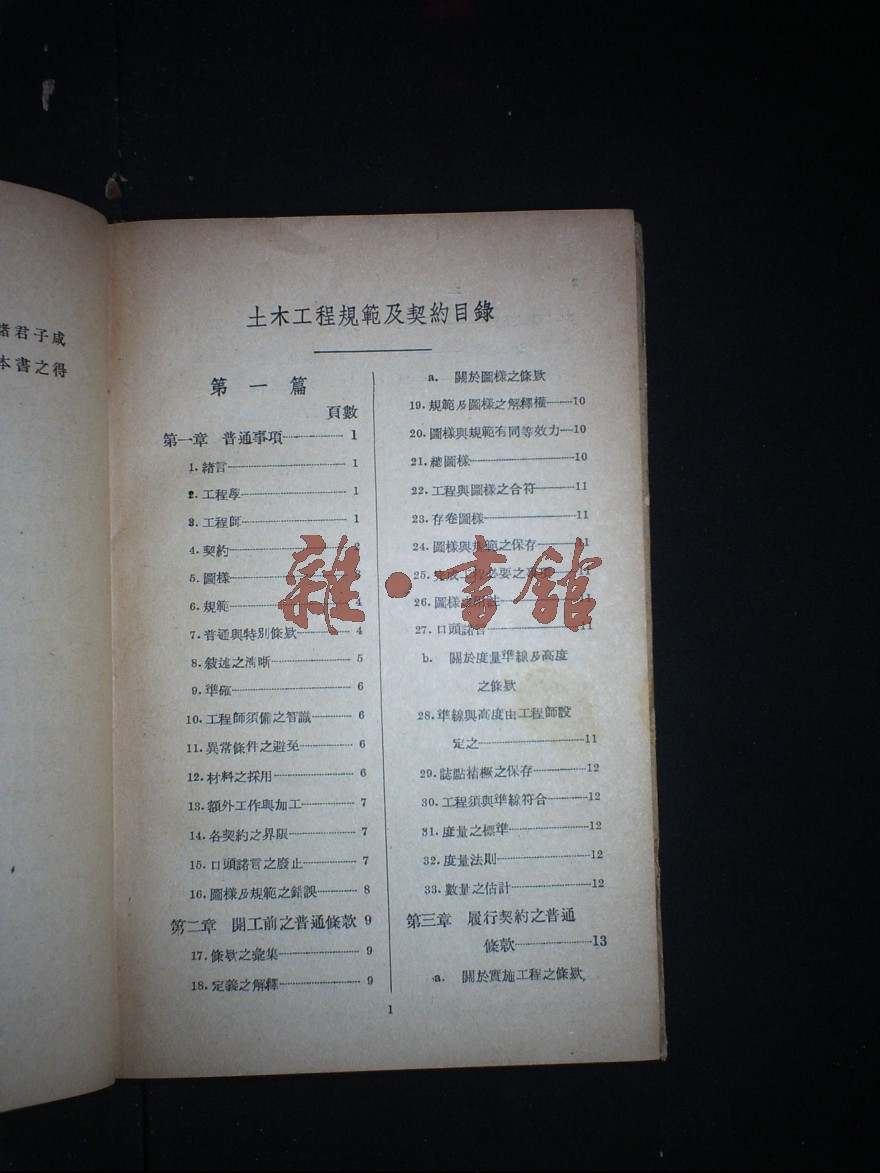 諸君子咸
本書之得
土木工程規範及契約目錄
第一篇
頁數
第一章 普通事項 1
1. 緒言 1
2. 工程學 1
3. 工程師 1
4. 契約 2
5. 圖樣
6. 規範 4
7. 普通與特別條款 4
8. 敍述之清晰 5
9. 準確 6
10. 工程師須備之智識 6
11. 異常條件之避免 6
12. 材料之採用 6
13. 額外工作與加工 7
14. 各契約之界限 7
15. 口頭諾言之廢止 7
16. 圖樣及規範之錯誤 8
第二章 開工前之普通條款 9
17. 條款之彙集 9
18. 定義之解釋 9
a. 關於圖樣之條款
19. 規範及圖樣之解釋權 10
20. 圖樣與規範有同等效力 10
21. 總圖樣 10
22. 工程與圖樣之合符 11
23. 存卷圖樣 11
24. 圖樣與規範之保存 11
25. 完成工程必要之 11
26. 圖樣 11
27. 口頭諾言 11
b. 關於度量準線及高度
之條款
28. 準線與高度由工程師設
定之 11
29. 誌點樁橛之保存 12
30. 工程須與準線符合 12
31. 度量之標準 12
32. 度量法則 12
33. 數量之估計 12
第三章 履行契約之普通
條款 13
a. 關於實施工程之條款
1
雜·書館